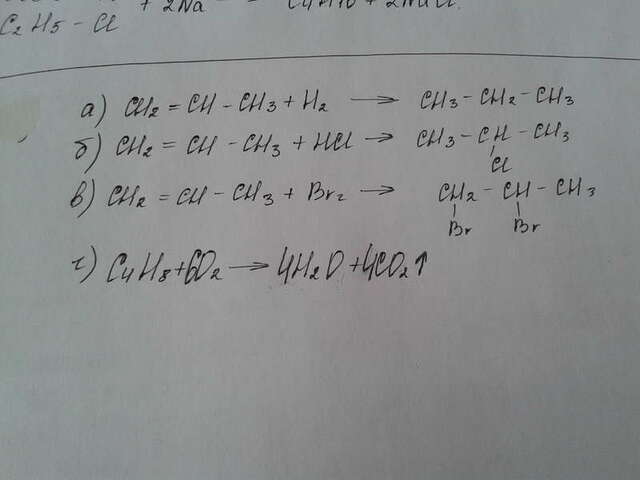 + 2Na
C4H10 + 2NaCl.
C2H5 - Cl
а) CH2 = CH - CH3 + H2 → CH3 - CH2 - CH3
б) CH2 = CH - CH3 + HCl → CH3 - CH - CH3
Cl
в) CH2 = CH - CH3 + Br2 → CH2 - CH - CH3
Br Br
г) C4H8 + 6O2 → 4H2O + 4CO2↑